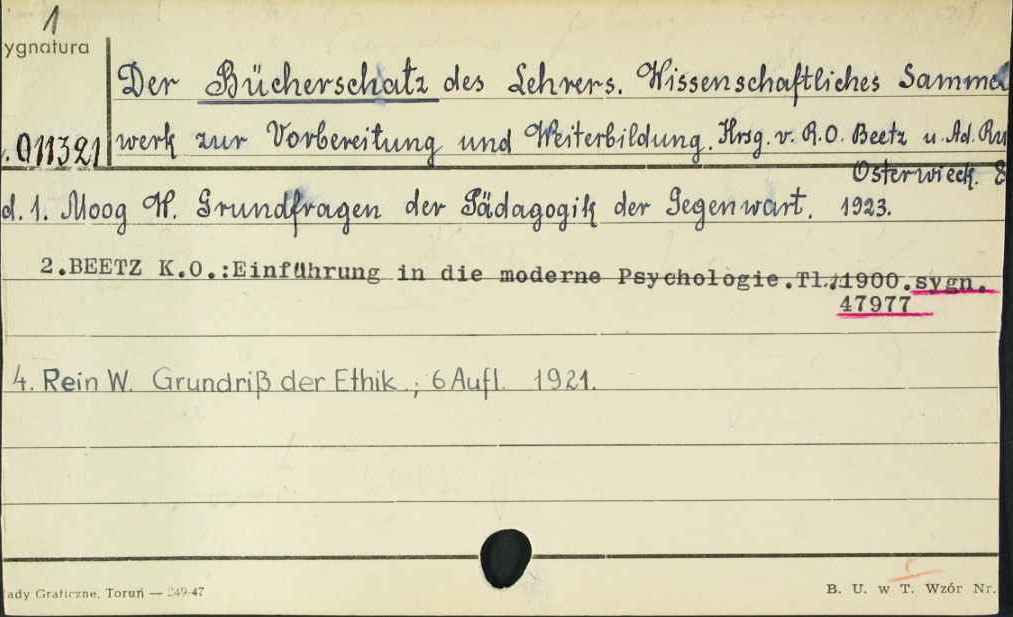 1
ygnatura
Der Bücherschatz des Lehrers. Wissenschaftliches Sammel
. 011321 werk zur Vorbereitung und Weiterbildung. Hrsg. v. R.O. Beetz u. Ad. Ru
Osterwieck.
d. 1. Moog W. Grundfragen der Pädagogik der Gegenwart. 1923.
2.BEETZ K.O.:Einführung in die moderne Psychologie.Tl.1 1900.sygn.
47977
4. Rein W. Grundriß der Ethik.; 6 Aufl. 1921.
ady Graficzne, Toruń — 249-47
B. U. w T. Wzór Nr.